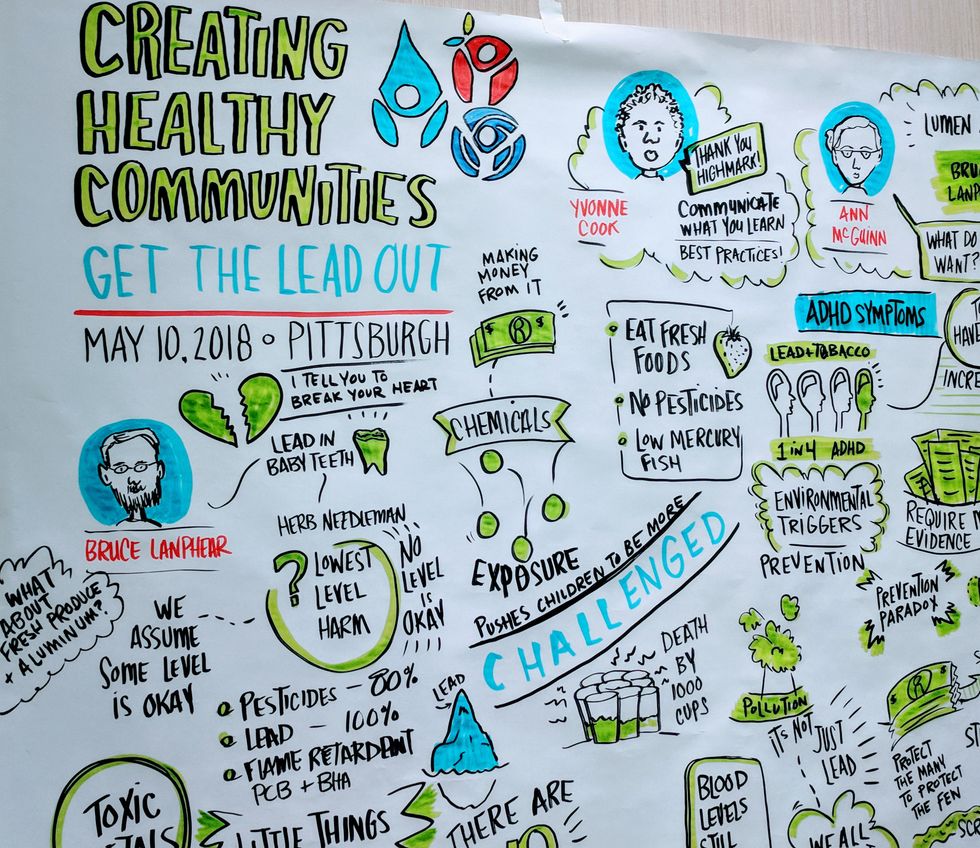 CREATING
HEALTHY
COMMUNITIES
GET THE LEAD OUT
MAY 10, 2018 • PITTSBURGH
I TELL YOU TO
BREAK YOUR HEART
LEAD IN
BABY TEETH
BRUCE LANPHEAR
WHAT
ABOUT
FRESH PRODUCE
+ ALUMINUM?
WE
ASSUME
SOME LEVEL
IS OKAY
HERB NEEDLEMAN
?
LOWEST
LEVEL
HARM
NO
LEVEL
IS
OKAY
• PESTICIDES - 80%
• LEAD - 100%
• FLAME RETARDENT
PCB + BHA
TOXIC
LITTLE THINGS
LEAD
THERE ARE
MAKING
MONEY
FROM IT
CHEMICALS
EXPOSURE
PUSHES CHILDREN TO BE MORE
CHALLENGED
DEATH
BY
1000
CUPS
YVONNE
COOK
THANK YOU
HIGHMARK!
COMMUNICATE
WHAT YOU LEARN
BEST PRACTICES!
• EAT FRESH
FOODS
• NO PESTICIDES
• LOW MERCURY
FISH
ANN
McGUINN
LUMEN
BRU
LANP
WHAT DO
WANT?
ADHD SYMPTOMS
LEAD+TOBACCO
1 IN 4 ADHD
HAN
INCRE
ENVIRONMENTAL
TRIGGERS
PREVENTION
REQUIRE
EVIDENCE
PREVENTION
PARADOX
POLLUTION
IT'S NOT JUST
LEAD
PROTECT
THE MANY
TO PROTECT
THE FEW
BLOOD
LEVELS
STILL
WE ALL